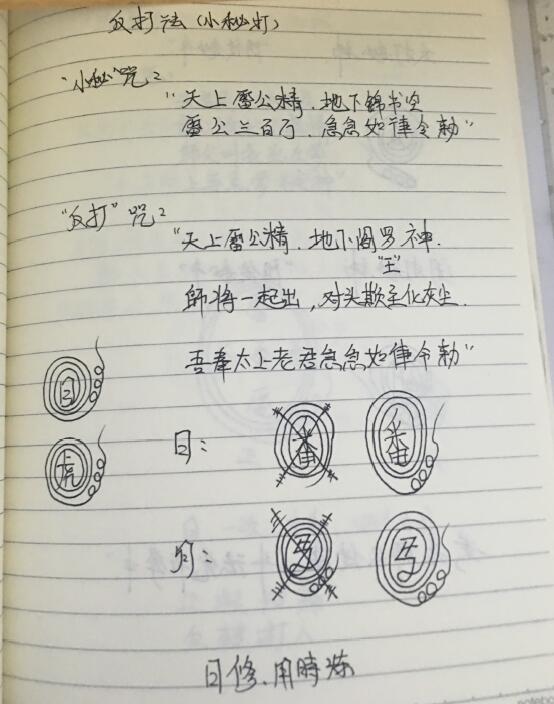 反打法(小秘打)
"小秘"咒:
"天上雷公精.地下錦书空
雷公三百万.急急如律令勅"
"反打"咒:
"天上雷公精.地下阎罗神.
"王"
師将一起出,对头欺主化灰尘.
吾奉太上老君急急如律令勅"
日
虎
日: 番 番
月:
日修.用時炼